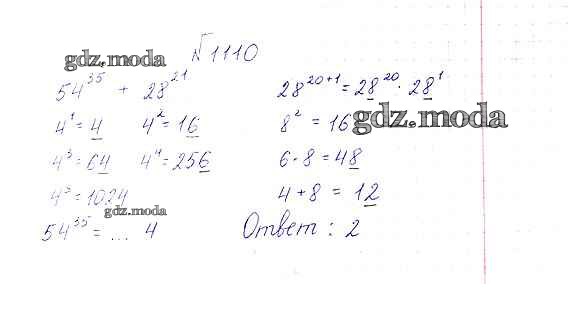 №1110
gdz.moda
54³⁵ + 28²¹
4¹ = 4 4² = 16
4³ = 64 4⁴ = 256
4⁵ = 1024
gdz.moda
54³⁵ = ... 4
28²⁰⁺¹ = 28²⁰ · 28¹
8² = 16
gdz.moda
6 · 8 = 48
4 + 8 = 12
Ответ : 2